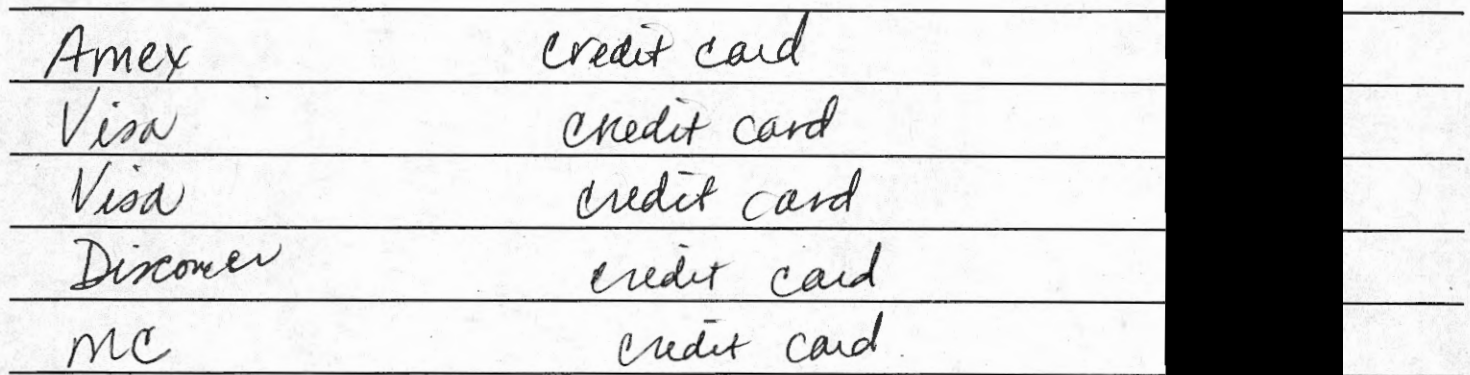 Amex credit card
Visa credit card
Visa credit card
Discover credit card
MC credit card